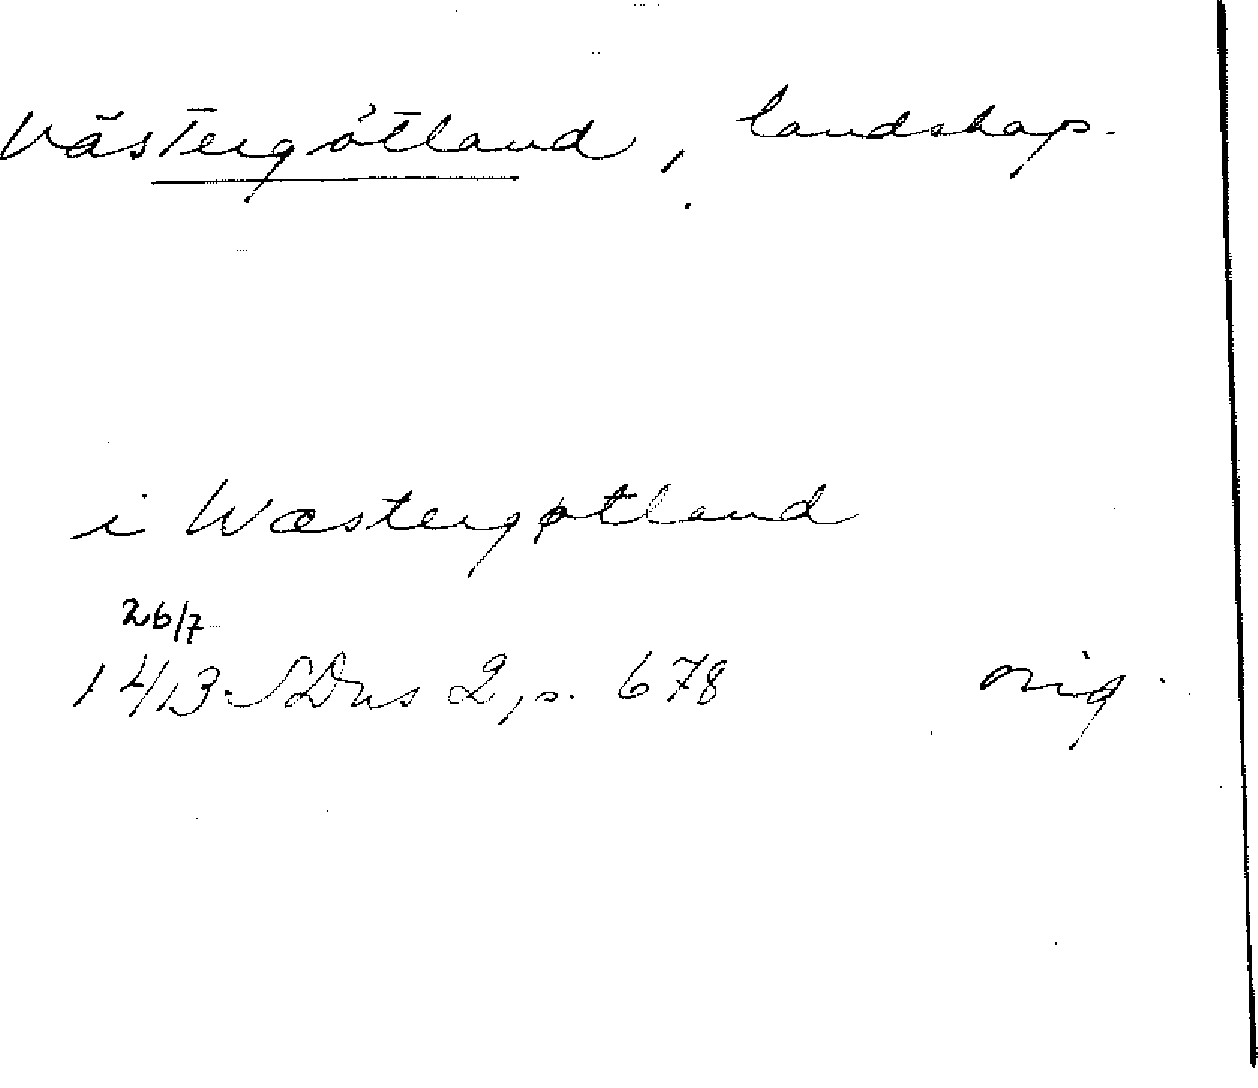 Västergötland, landskap.
i Wæstergøtland
26/7
1413 SDns 2, s. 678 orig.